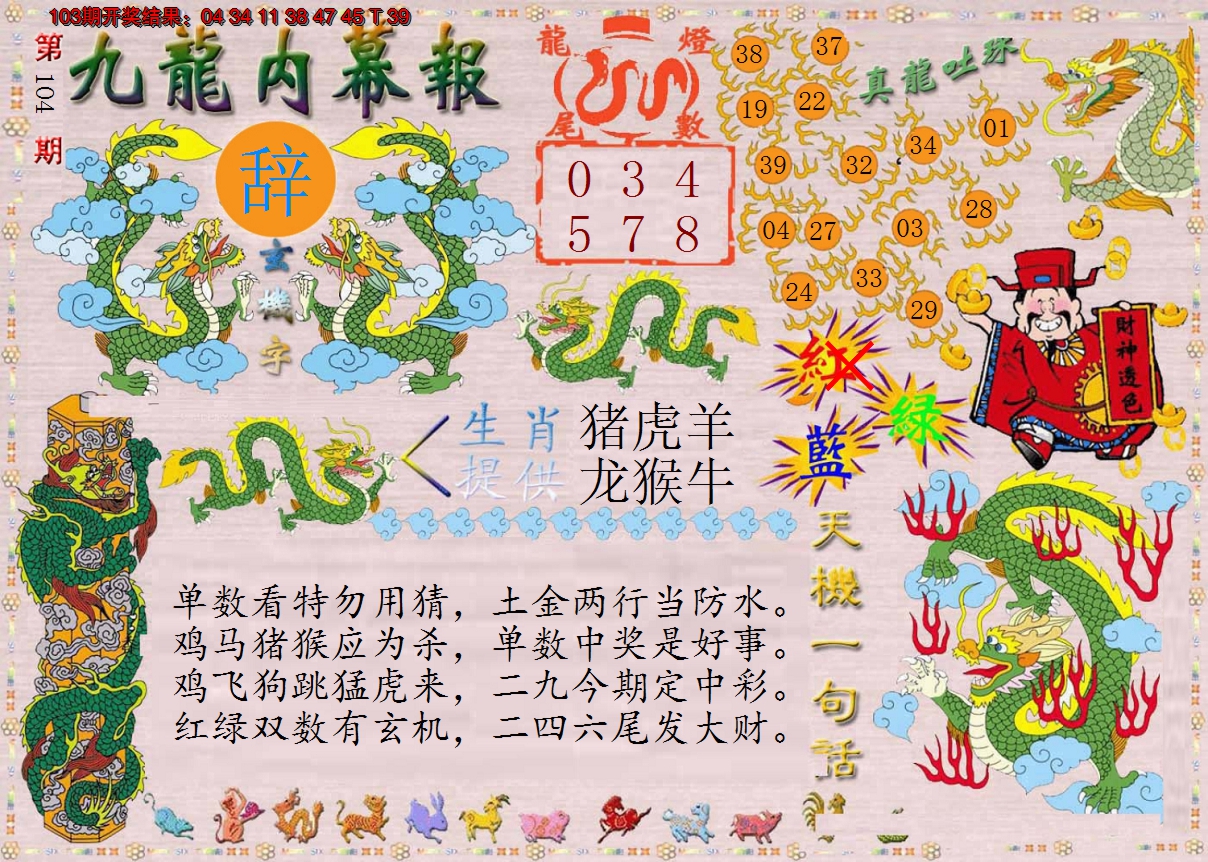 103期开奖结果：04 34 11 38 47 45 T 39
第104期
九龍内幕報
辞
玄機字
龍燈
尾數
0 3 4
5 7 8
真龍吐珠
38
37
19
22
39
32
34
01
04
27
03
28
24
33
29
財神透色
紅
綠
藍
生肖 猪虎羊
提供 龙猴牛
天機一句话
单数看特勿用猜，土金两行当防水。
鸡马猪猴应为杀，单数中奖是好事。
鸡飞狗跳猛虎来，二九今期定中彩。
红绿双数有玄机，二四六尾发大财。